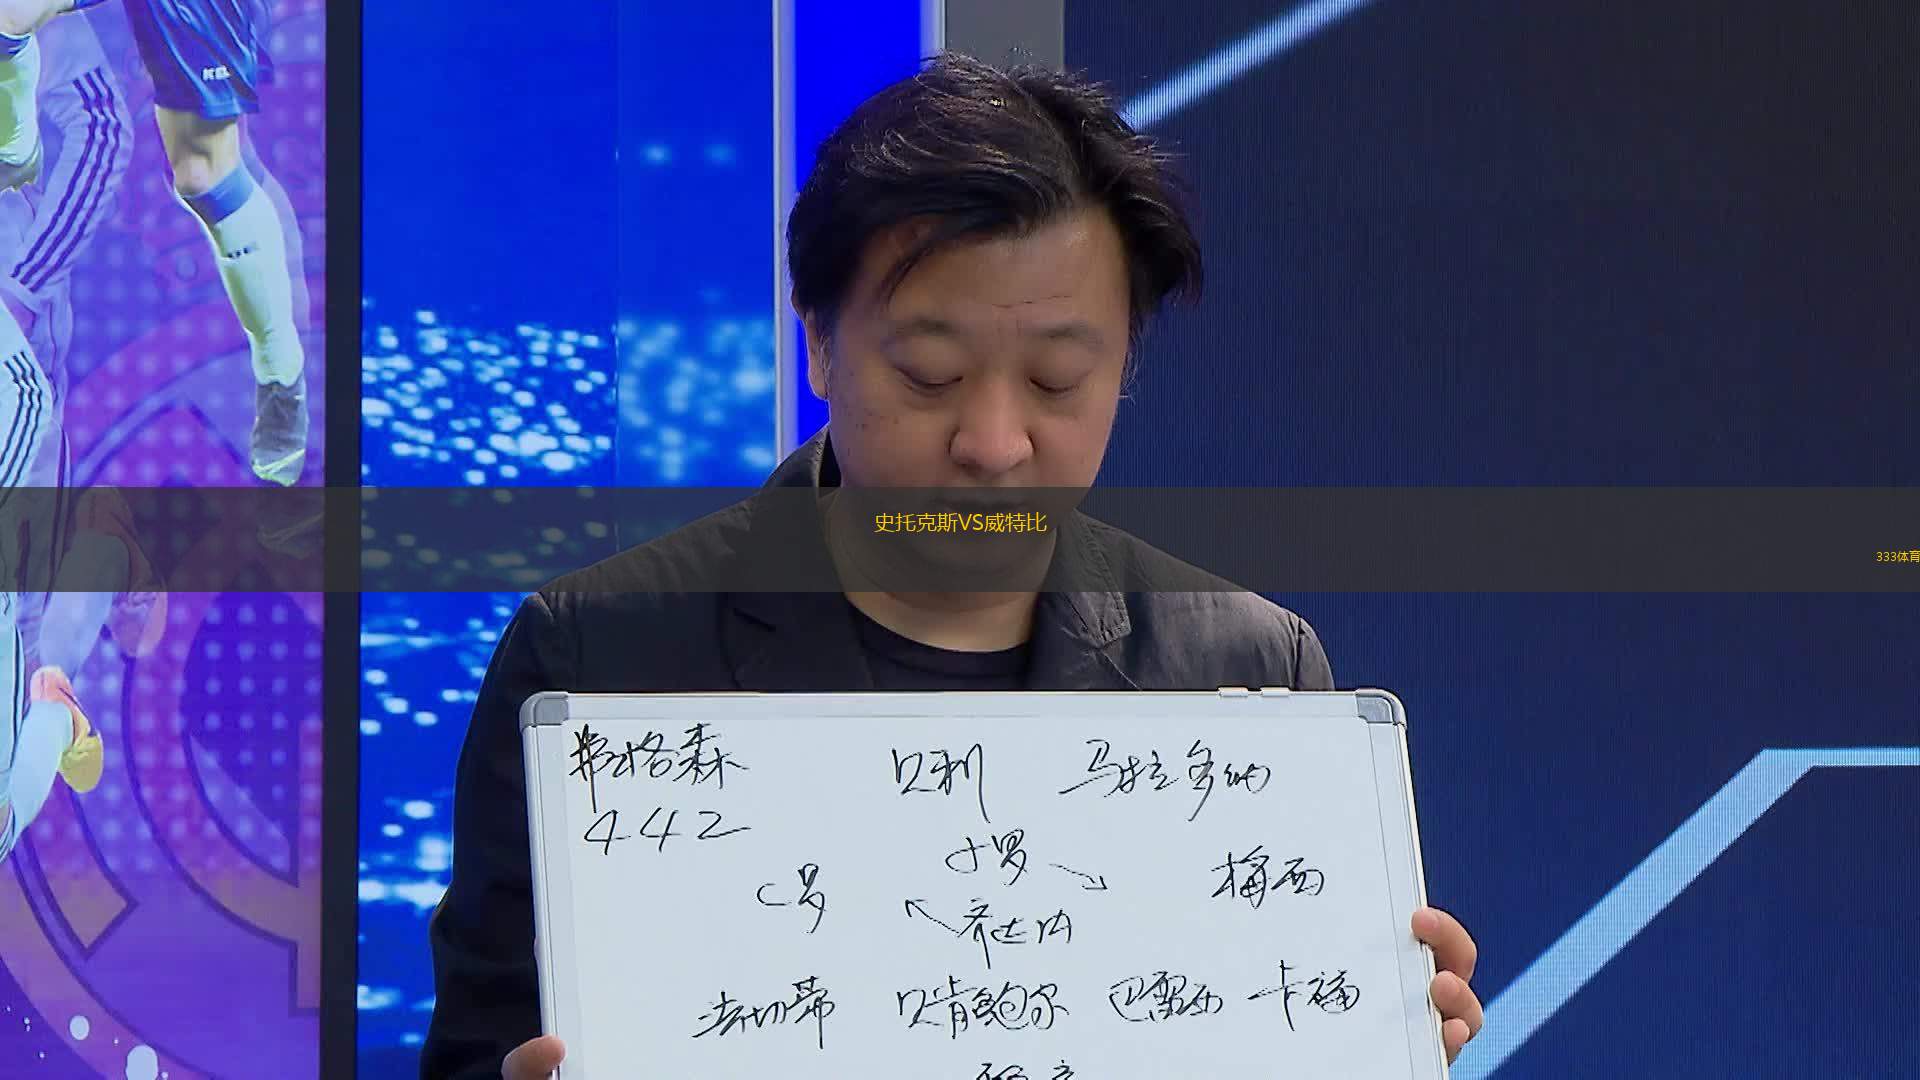 史托克斯VS威特比
333体育
弗格森 贝利 马拉多纳
442
小罗
C罗 梅西
齐达内
法切蒂 贝肯鲍尔 巴雷西 卡福